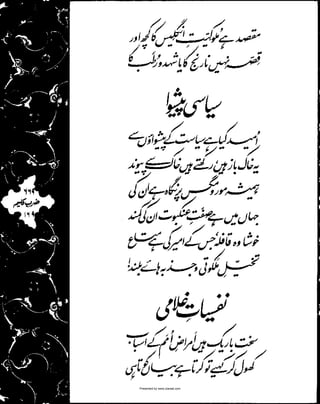 مقصد ہے مُلوکیّتِ انگلیس کا کچھ اور
قصّہ نہیں نارنج کا یا شہد و رُطَب کا
سیاسی پیشوا
اُمید کیا ہے سیاست کے پیشواؤں سے
یہ خاک باز ہیں، رکھتے ہیں خاک سے پیوند
ہمیشہ مور و مگس پر نگاہ ہے ان کی
جہاں میں ہے صفَتِ عنکبوت ان کی کمند
خوشا وہ قافلہ، جس کے امیر کی ہے متاع
تخیّلِ ملکوتی و جذبہ ہائے بلند!
نفسیاتِ غلامی
سخت باریک ہیں اَمراضِ اُمَم کے اسباب
کھول کر کہیے تو کرتا ہے بیاں کوتاہی
ضربِ کلیم
Presented by www.ziaraat.com